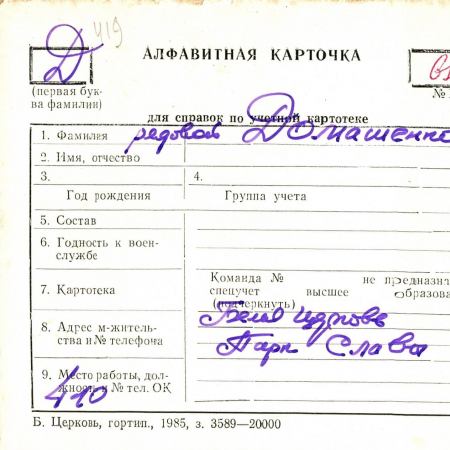 Д 419
АЛФАВИТНАЯ КАРТОЧКА
(первая бук-
ва фамилии)
№
для справок по учетной картотеке
1. Фамилия рядовой Домашенко
2. Имя, отчество
3. 4.
Год рождения Группа учета
5. Состав
6. Годность к воен-
службе
Команда № не предназна
7. Картотека спецучет высшее образова
(подчеркнуть)
8. Адрес м-житель-
ства и № телефона
Бела Церковь
Парк Славы
9. Место работы, дол-
жность и № тел. ОК
410
Б. Церковь, гортип., 1985, з. 3589—20000